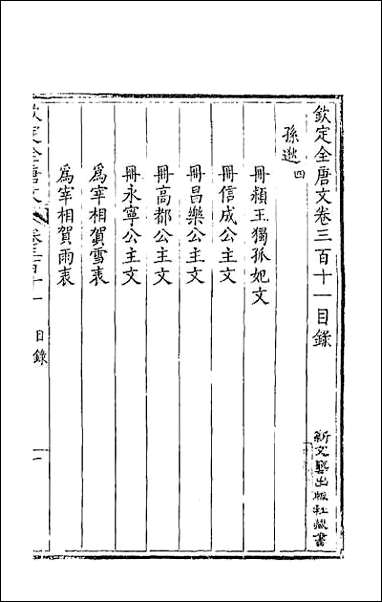 欽定全唐文卷三百十一目錄
新文藝出版社藏書
孫逖四
冊潁王獨孤妃文
冊信成公主文
冊昌樂公主文
冊高都公主文
冊永寧公主文
爲宰相賀雪表
爲宰相賀雨表
目錄
一